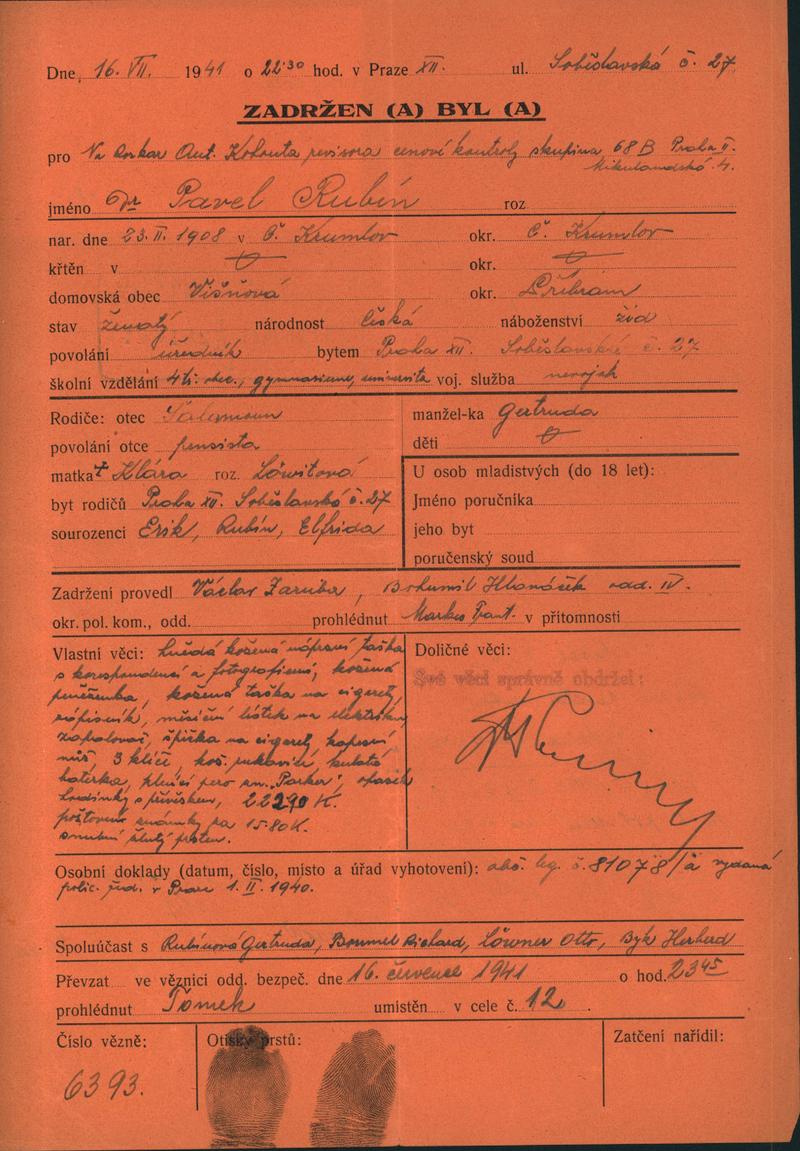 Dne, 16. VII. 1941 o 22·30 hod. v Praze XII. ul. Soběslavská č. 27
ZADRŽEN (A) BYL (A)
pro Na rozkaz Ant. Kohouta revisora cenové kontroly skupina 68 B Praha II.
Mikulandská 4.
jméno Dr Pavel Rubín roz
nar. dne 23. II. 1908 v Č. Krumlov okr. Č. Krumlov
křtěn v okr.
domovská obec Višňová okr. Příbram
stav ženatý národnost česká náboženství žid
povolání úředník bytem Praha XII. Soběslavská č. 27
školní vzdělání 4 tř. obec., gymnasium, universita voj. služba nevoják
Rodiče: otec Salamoun manžel-ka Gertruda
povolání otce pensista děti
matka † Klára roz. Löwitová U osob mladistvých (do 18 let):
byt rodičů Praha XII. Soběslavská č. 27 Jméno poručníka
sourozenci Erik, Rubín, Elfrida jeho byt
poručenský soud
Zadržení provedl Václav Zaruba, Bohumil odd. IV.
okr. pol. kom., odd. prohlédnut v přítomnosti
Vlastní věci: hnědá kožená náprsní taška Doličné věci:
s korespondencí a fotografiemi, kožená Své věci správně obdržel:
peněženka, kožená taška na cigarety,
zápisník, měsíční lístek na elektriku,
zapalovač, špička na cigarety, kapesní
nůž, 3 klíče, kož. rukavice, kulatá
baterka, plnicí pero zn. „Parker",
hodinky s přívěskem, K.
poštovní známky za 15·80 K.
snubní žlutý prsten.
Osobní doklady (datum, číslo, místo a úřad vyhotovení): obč. leg. č. 81078/ä vydaná
polic. řed. v Praze 1. II. 1940.
Spoluúčast s Rubínová Gertruda, Richard, Löwner Otto, Byk Herberd
Převzat ve věznici odd. bezpeč. dne 16. července 1941 o hod. 23 45
prohlédnut Tomek umístěn v cele č. 12.
Číslo vězně: Otisky prstů: Zatčení nařídil:
6393.